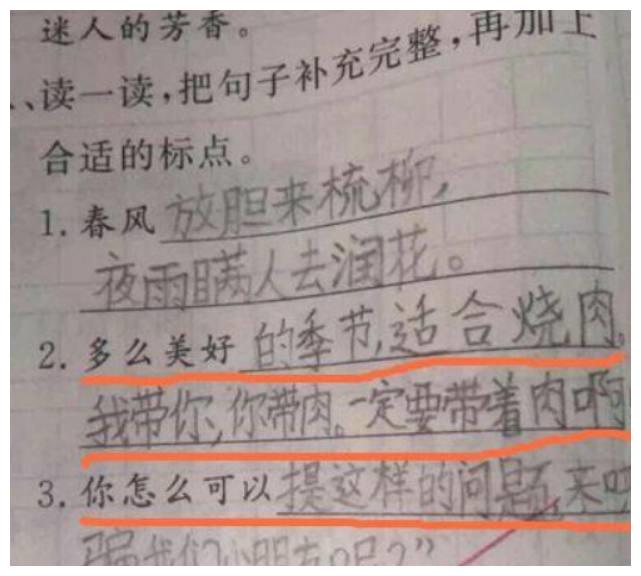 迷人的芳香。
、读一读,把句子补充完整,再加上
合适的标点。
1. 春风放胆来梳柳,
夜雨瞒人去润花。
2. 多么美好的季节,适合烧肉。
我带你,你带肉。一定要带着肉啊
3. 你怎么可以提这样的问题,来
骗我们小朋友呢?”